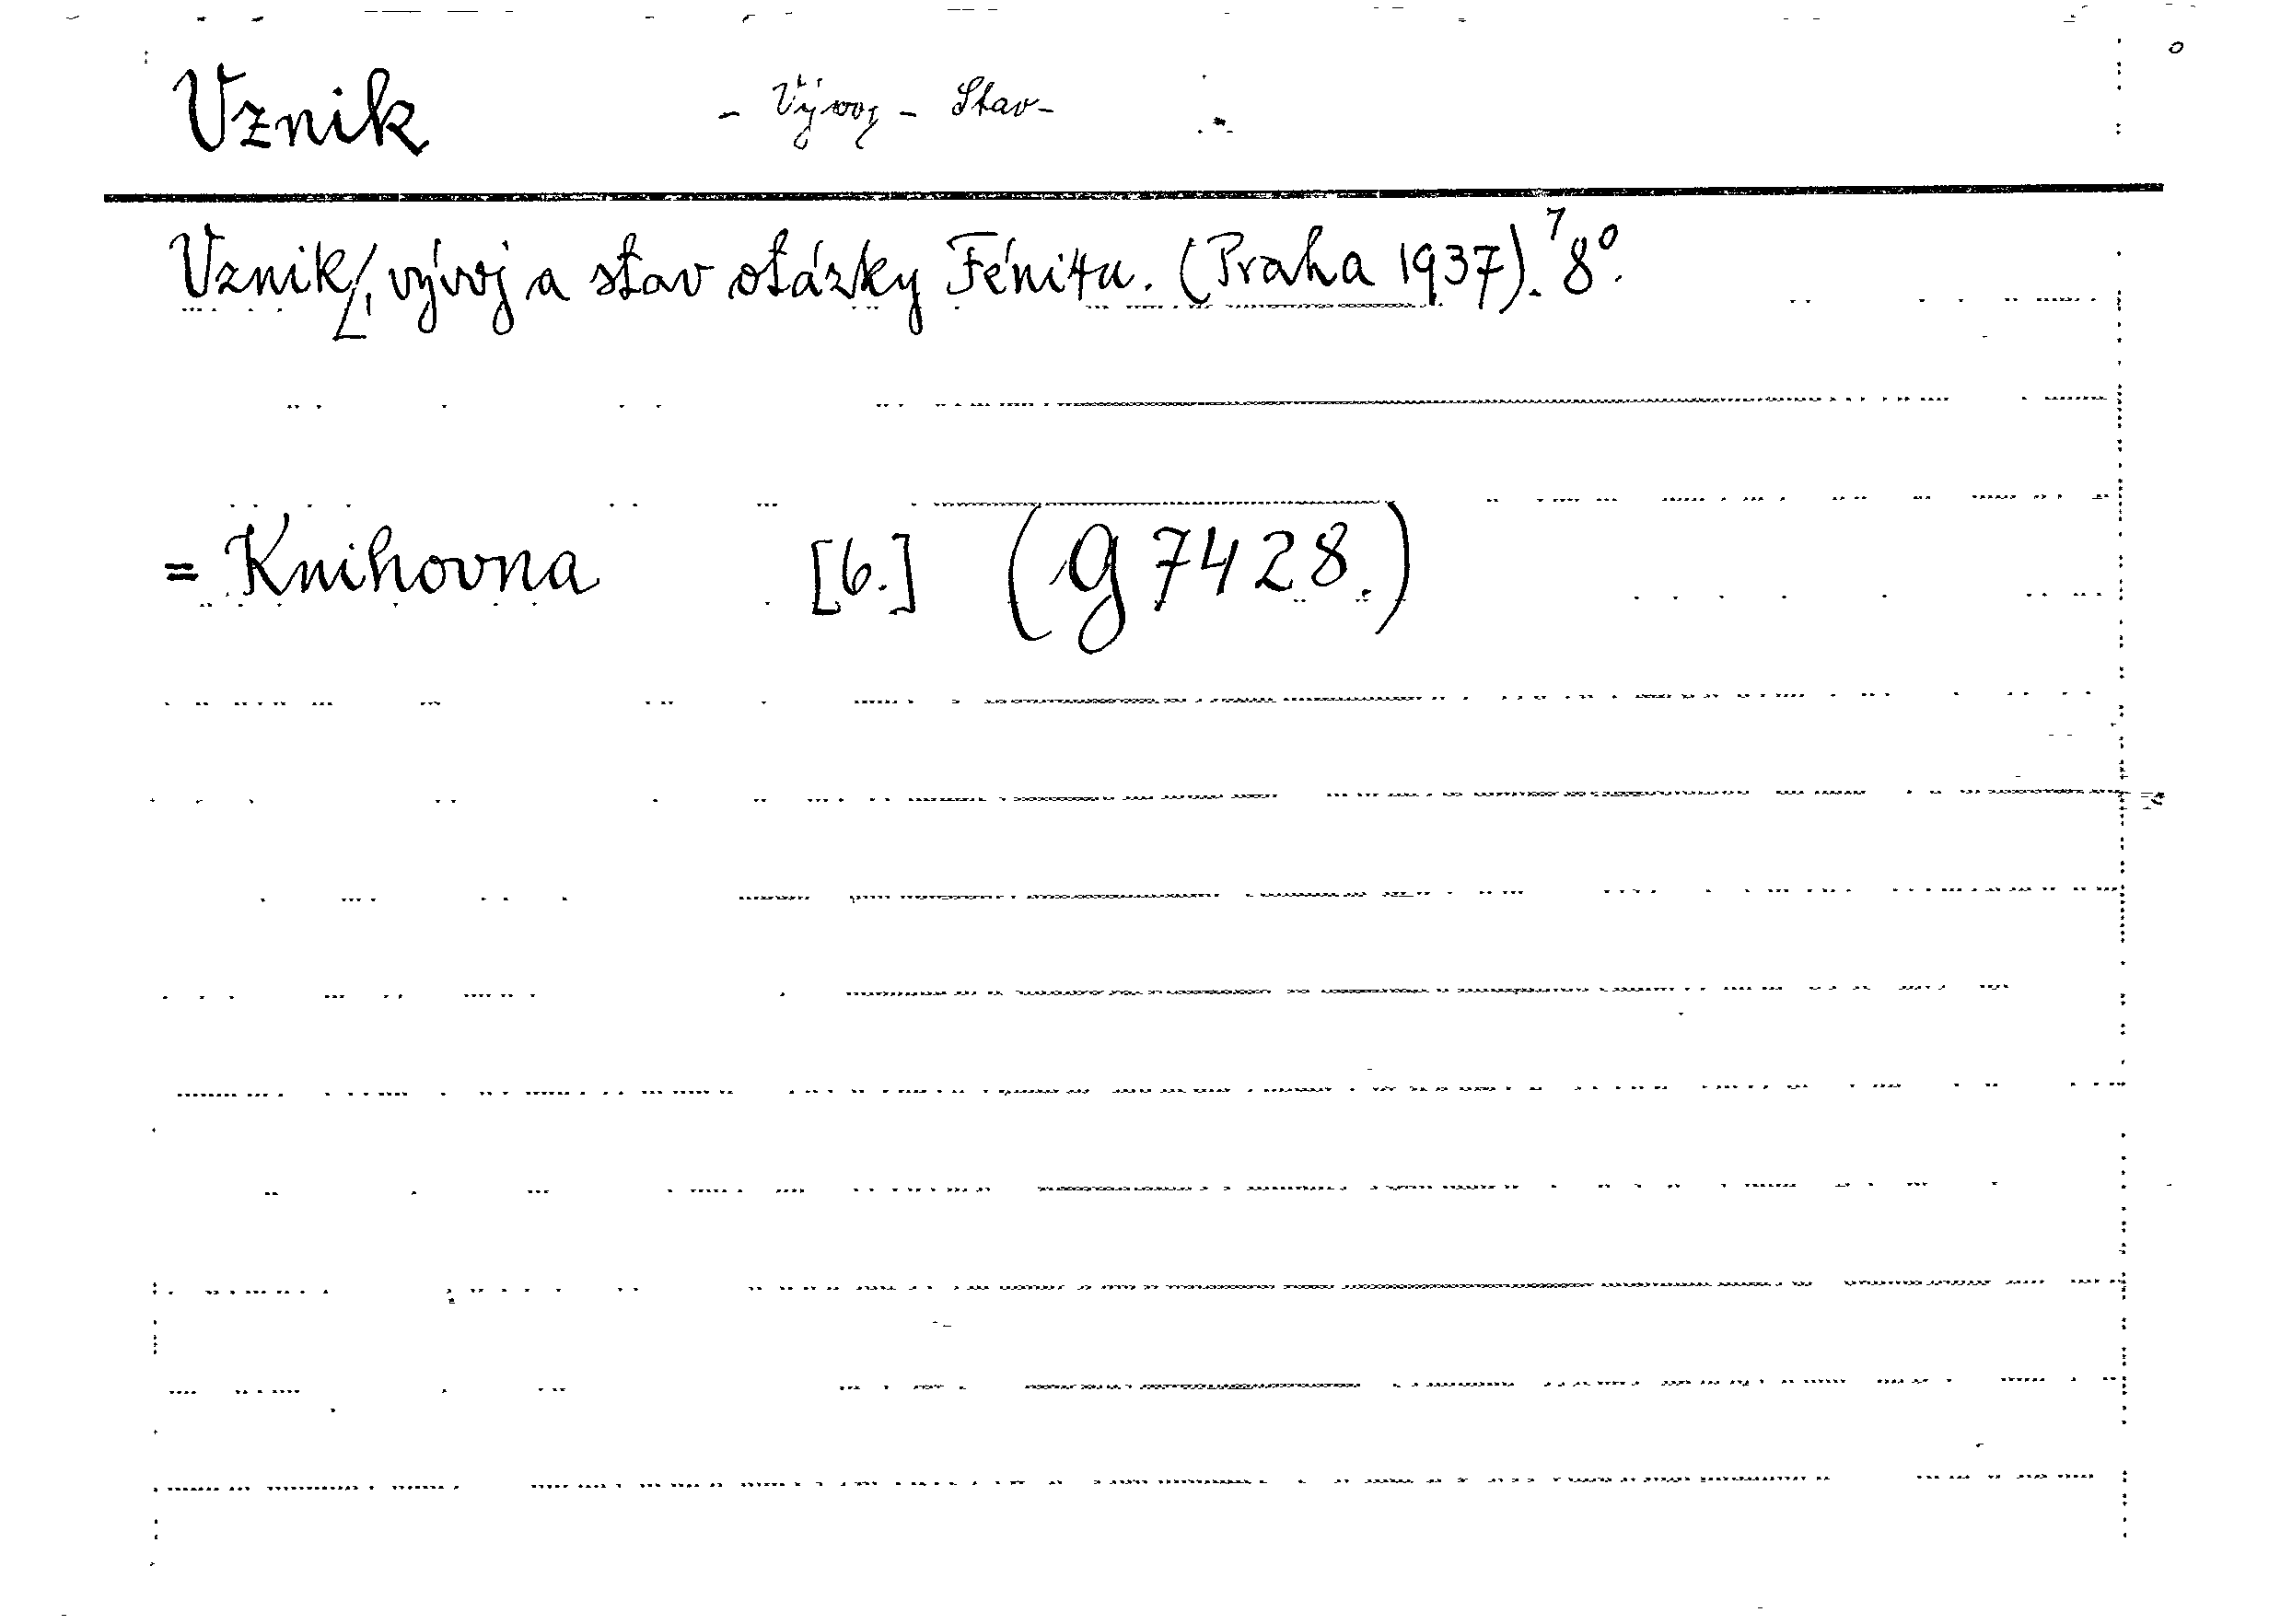 Vznik - Vývoj - Stav-
Vznik, vývoj a stav otázky Fénixu. (Praha 1937). 8°.
= Knihovna [6.] (g 7428.)